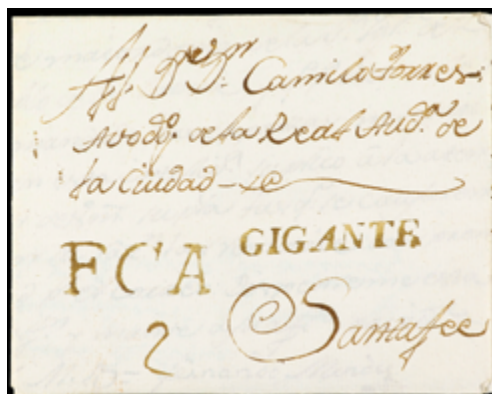 Al Sr. Dr. Camilo Torres
Avodo. de la Real Auda. de
la Ciudad de
FCA GIGANTE
2 Santafee